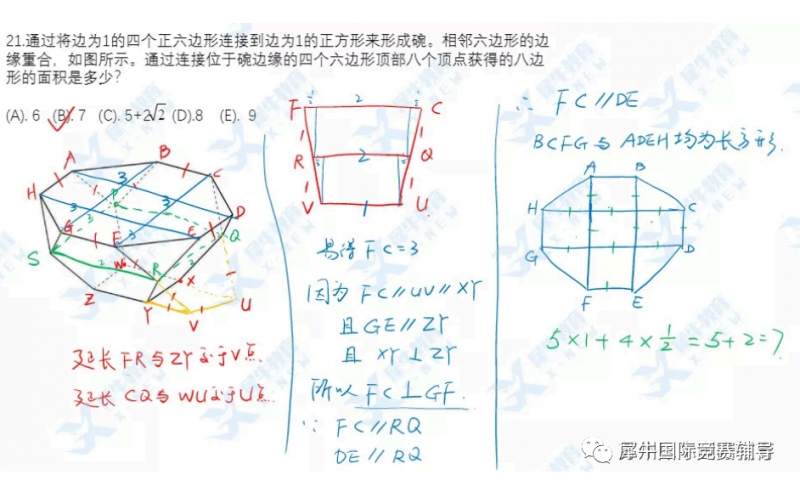 21.通过将边为1的四个正六边形连接到边为1的正方形来形成碗。相邻六边形的边
缘重合，如图所示。通过连接位于碗边缘的四个六边形顶部八个顶点获得的八边
形的面积是多少?
(A). 6 (B). 7 (C). 5+2√2 (D).8 (E). 9
延长FR与ZY交于V点.
延长CQ与WU交于U点.
易得FC=3
因为 FC∥UV∥XY
且GE∥ZY
且 XY⊥ZY
所以 FC⊥GF.
∵ FC∥RQ
DE∥RQ
∴ FC∥DE
BCFG与ADEH均为长方形.
A B
H C
G D
F E
5×1+4×½=5+2=7
犀牛国际竞赛辅导